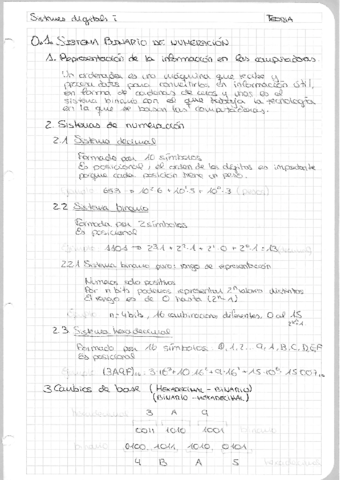 Sistemes digitals i TEORIA
0.1. SISTEMA BINARIO DE NUMERACIÓN
1. Representación de la información en las computadoras
Un ordenador es una máquina que recibe y
procesa datos para convertirlos en información útil,
en forma de cadenas de ceros y unos es el
sistema binario con el que trabaja la tecnología
en la que se basan las computadoras.
2. Sistemas de numeración
2.1 Sistema decimal
Formado por 10 símbolos
Es posicional: el orden de los dígitos en importante
porque cada posición tiene un peso.
2.2 Sistema binario
Formado por 2 símbolos
Es posicional
1101
2.2.1 Sistema binario puro: rango de representación
Números solo positivos
Por n bits podemos representar 2ⁿ valores distintos
El rango es de 0 hasta (2ⁿ-1)
n=4 bits, 16 combinaciones diferentes. 0 al 15
2.3 Sistema hexadecimal
Formado por 16 símbolos 0,1,2...9,A,B,C,D,E,F
Es posicional
3 Cambios de base (HEXADECIMAL - BINARIO)
(BINARIO - HEXADECIMAL)
3 A 9
0011 1010 1001
0100 1011 1010 0101
4 B A 5